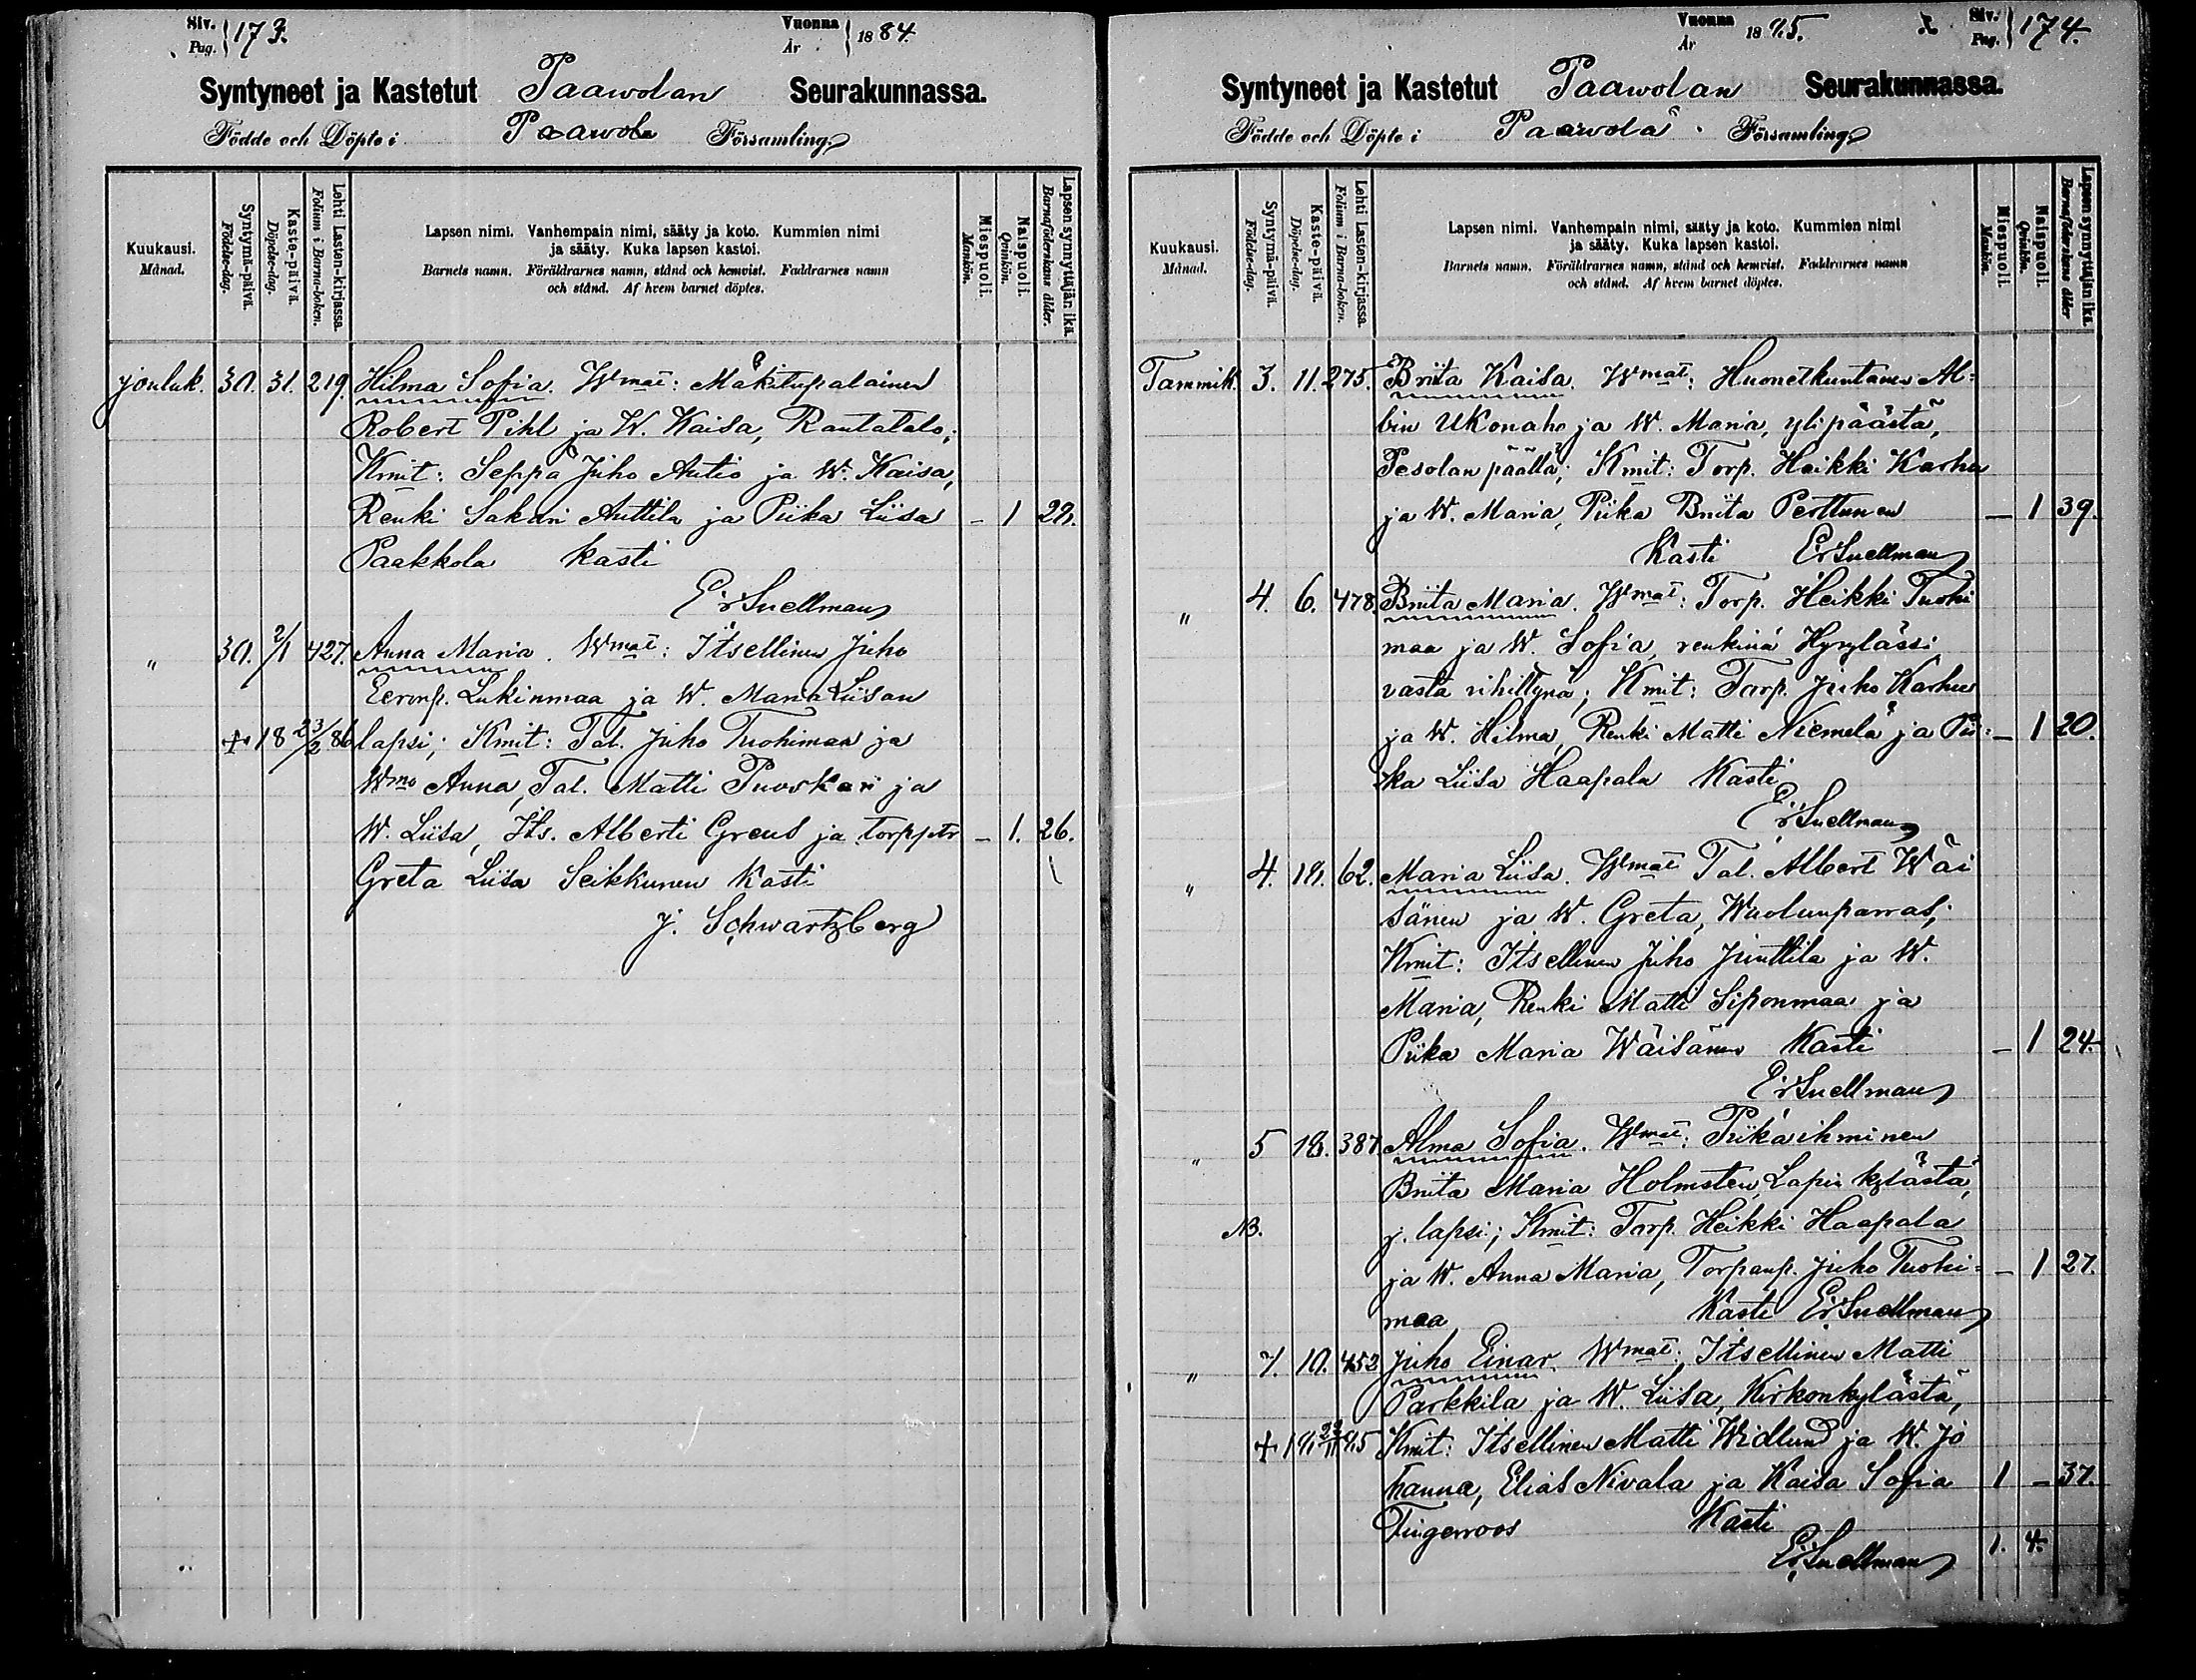 Siv. Pag. 173. Vuonna År 1884.
Syntyneet ja Kastetut Paawolan Seurakunnassa.
Födde och Döpte i Paawola Församling
Kuukausi. Månad.
Syntymä-päivä. Födelse-dag.
Kaste-päivä. Döpelse-dag.
Lehti Lasten-kirjassa. Folium i Barna-boken.
Lapsen nimi. Vanhempain nimi, sääty ja koto. Kummien nimi
ja sääty. Kuka lapsen kastoi.
Barnets namn. Föräldrarnes namn, stånd och hemvist. Faddrarnes namn
och stånd. Af hvem barnet döptes.
Miespuoli. Mankön.
Naispuoli. Qvinkön.
Lapsen synnyttäjän ikä. Barnaföderskans ålder.
jouluk. 30. 31. 219. Hilma Sofia. Wmat: Mäkitupalainen
Robert Pihl ja W. Kaisa, Rantatalo;
Kmit: Seppä Juho Autio ja W. Kaisa,
Renki Sakari Anttila ja Piika Liisa – 1 29.
Paakkola kasti
E. Snellman
" 30. 2/1 427. Anna Maria. Wmat: Itsellinen Juho
Eeronp. Lukinmaa ja W. Maria Liisan
+ 18 23/2 86 lapsi; Kmit: Tal. Juho Tuohimaa ja
Wmo Anna, Tal. Matti Puoskari ja
W. Liisa, Its. Alberti Greus ja torpptr – 1. 26.
Greta Liisa Seikkunen Kasti
J. Schwartzberg
Vuonna År 1885. Siv. Pag. 174.
Syntyneet ja Kastetut Paawolan Seurakunnassa.
Födde och Döpte i Paawola Församling
Kuukausi. Månad.
Syntymä-päivä. Födelse-dag.
Kaste-päivä. Döpelse-dag.
Lehti Lasten-kirjassa. Folium i Barna-boken.
Lapsen nimi. Vanhempain nimi, sääty ja koto. Kummien nimi
ja sääty. Kuka lapsen kastoi.
Barnets namn. Föräldrarnes namn, stånd och hemvist. Faddrarnes namn
och stånd. Af hvem barnet döptes.
Miespuoli. Mankön.
Naispuoli. Qvinkön.
Lapsen synnyttäjän ikä. Barnaföderskans ålder
Tammik. 3. 11. 275. Brita Kaisa. Wmat: Huonetkuntanen Al=
bin Ukonaho ja W. Maria, ylipäästä,
Pesolan päällä; Kmit: Torp. Heikki Karhu
ja W. Maria, Piika Brita Perttunen – 1 39.
Kasti E. Snellman
" 4. 6. 478. Briita Maria. Wmat: Torp. Heikki Tuohi
maa ja W. Sofia, renkinä Hyrylässi
vasta vihittynä; Kmit: Torp. Juho Karhu
ja W. Hilma, Renki Matti Niemelä ja Pii= – 1 20.
ka Liisa Haapala Kasti
E. Snellman
" 4. 18. 62. Maria Liisa. Wmat Tal. Albert Wäi
sänen ja W. Greta, Wuolunparras;
Kmit: Itsellinen Juho Junttila ja W.
Maria, Renki Matti Siponmaa ja
Piika Maria Wäisänen Kasti – 1 24.
E. Snellman
" 5 18. 387. Alma Sofia. Wmat: Piikaihminen
Briita Maria Holmsten, Lapin kylästä,
NB. j. lapsi; Kmit: Torp. Heikki Haapala
ja W. Anna Maria, Torpanp. Juho Tuohi= – 1 27.
maa Kasti E. Snellman
" 7. 10. 452 Juho Einar. Wmat: Itsellinen Matti
Parkkila ja W. Liisa, Kirkonkylästä,
Kmit: Itsellinen Matti Widlund ja W. Jo
hanna, Elias Nivala ja Kaisa Sofia 1 – 37.
Fingerroos Kasti
E. Snellman 1. 4.